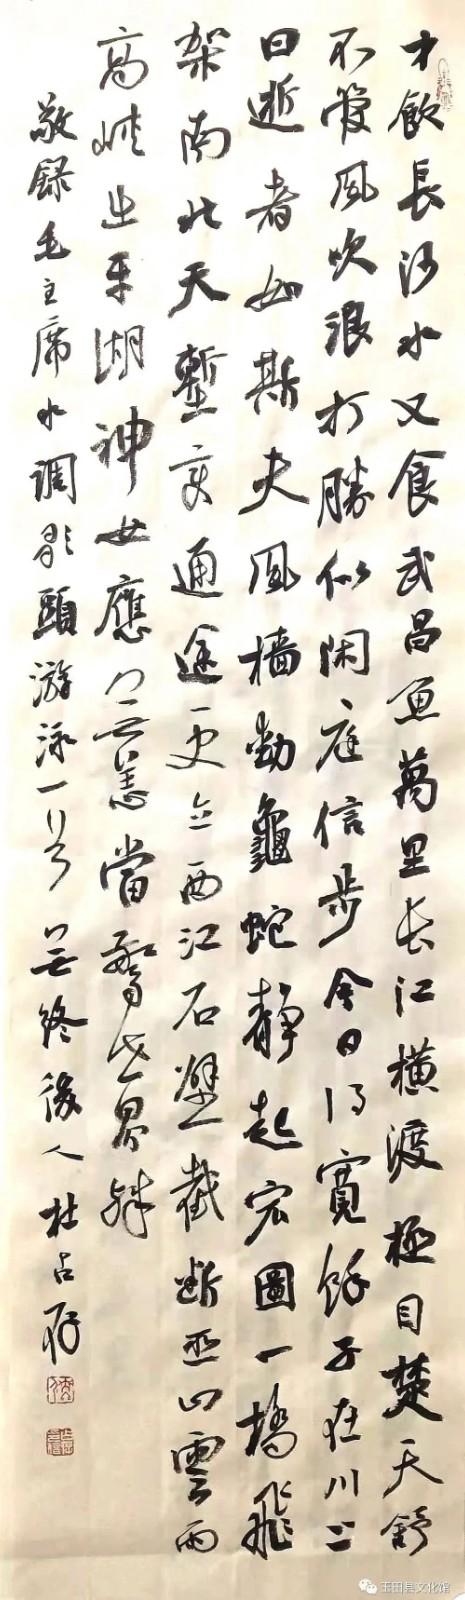 才飲長沙水又食武昌魚萬里長江橫渡極目楚天舒
不管風吹浪打勝似閑庭信步今日得寬餘子在川上
曰逝者如斯夫風檣動龜蛇靜起宏圖一橋飛
架南北天塹变通途更立西江石壁截斷巫山雲雨
高峽出平湖神女應無恙當驚世界殊
敬録毛主席水調歌頭游泳一首 無終後人杜占存
玉田县文化馆